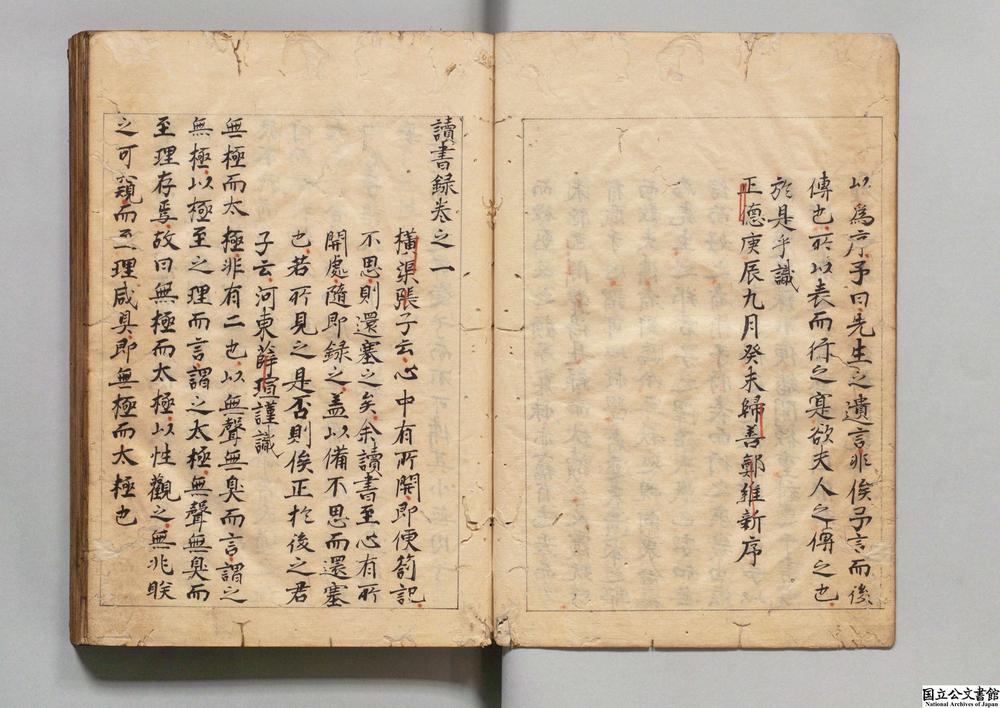 以爲序予曰先生之遺言非俟予言而後
傳也所以表而行之寔欲夫人之傳之也
於是乎識
正德庚辰九月癸未歸善鄭維新序
讀書録卷之一
橫渠張子云心中有所開即便劄記
不思則還塞之矣余讀書至心有所
開處隨即録之盖以備不思而還塞
也若所見之是否則俟正於後之君
子云河東薛瑄謹識
無極而太極非有二也以無聲無臭而言謂之
無極以極至之理而言謂之太極無聲無臭而
至理存焉故曰無極而太極以性觀之無兆眹
之可窺而至理咸具即無極而太極也
国立公文書館
National Archives of Japan